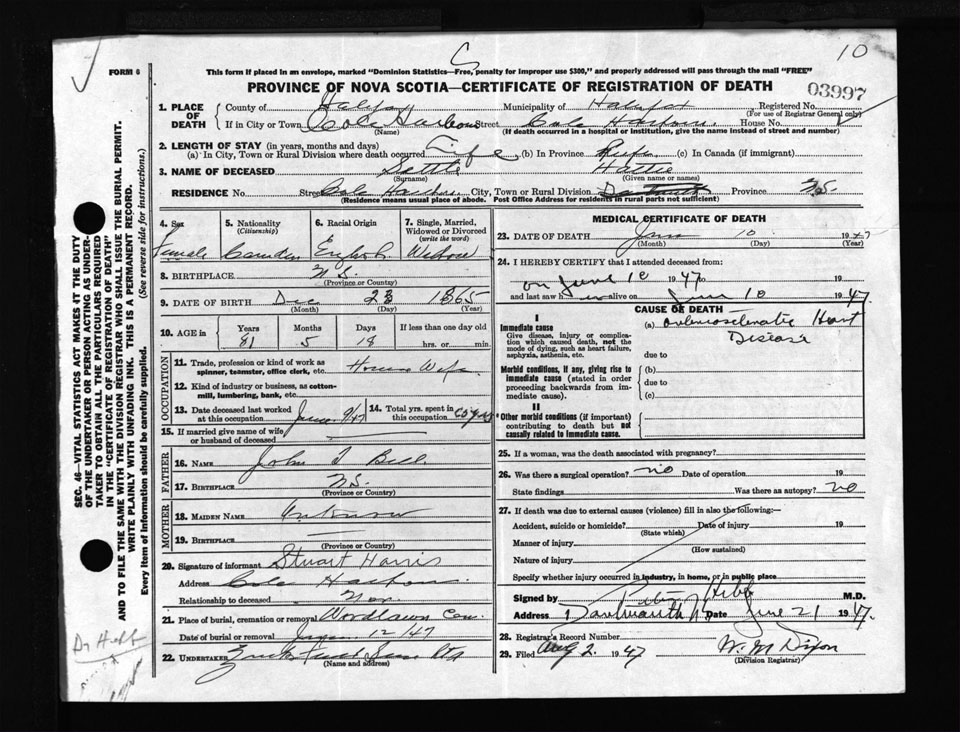 FORM 6
10
This form if placed in an envelope, marked "Dominion Statistics—Free, penalty for improper use $300," and properly addressed will pass through the mail "FREE"
PROVINCE OF NOVA SCOTIA—CERTIFICATE OF REGISTRATION OF DEATH
03997
1. PLACE OF DEATH
County of Halifax Municipality of Halifax Registered No.
(For use of Registrar General only)
If in City or Town Cole Harbour Street Cole Harbour House No.
(Name) (If death occurred in a hospital or institution, give the name instead of street and number)
2. LENGTH OF STAY (in years, months and days)
(a) In City, Town or Rural Division where death occurred Life (b) In Province (c) In Canada (if immigrant)
3. NAME OF DECEASED Settle Hattie
(Surname) (Given name or names)
RESIDENCE No. Street Cole Harbour City, Town or Rural Division Province N.S.
(Residence means usual place of abode) Post Office Address for residents in rural parts not sufficient)
4. Sex
Female
5. Nationality
(Citizenship)
Canadian
6. Racial Origin
English
7. Single, Married, Widowed or Divorced
(write the word)
Widow
8. BIRTHPLACE N.S.
(Province or Country)
9. DATE OF BIRTH Dec 23 1865
(Month) (Day) (Year)
10. AGE in
Years Months Days If less than one day old
81 5 18 hrs. or min.
OCCUPATION
11. Trade, profession or kind of work as spinner, teamster, office clerk, etc. House Wife
12. Kind of industry or business, as cotton-mill, lumbering, bank, etc.
13. Date deceased last worked at this occupation June 9/47
14. Total yrs. spent in this occupation
15. If married give name of wife or husband of deceased
FATHER
16. NAME John Bell
17. BIRTHPLACE N.S.
(Province or Country)
MOTHER
18. MAIDEN NAME Unknown
19. BIRTHPLACE
(Province or Country)
20. Signature of informant Stuart Harris
Address Cole Harbour
Relationship to deceased Non
21. Place of burial, cremation or removal Woodlawn Cem.
Date of burial or removal June 12/47
22. UNDERTAKER
(Name and address)
MEDICAL CERTIFICATE OF DEATH
23. DATE OF DEATH June 10 1947
(Month) (Day) (Year)
24. I HEREBY CERTIFY that I attended deceased from:
on June 10 1947 to 19
and last saw her alive on June 10 1947.
CAUSE OF DEATH
I
Immediate cause
Give disease, injury or complication which caused death, not the mode of dying, such as heart failure, asphyxia, asthenia, etc.
(a) Arteriosclerotic Heart
Disease
due to
Morbid conditions, if any, giving rise to immediate cause (stated in order proceeding backwards from immediate cause).
(b)
due to
(c)
II
Other morbid conditions (if important) contributing to death but not causally related to immediate cause.
25. If a woman, was the death associated with pregnancy?
26. Was there a surgical operation? no Date of operation 19
State findings Was there an autopsy? no
27. If death was due to external causes (violence) fill in also the following:—
Accident, suicide or homicide? Date of injury 19
(State which)
Manner of injury
(How sustained)
Nature of injury
Specify whether injury occurred in industry, in home, or in public place
Signed by Hebb M.D.
Address Dartmouth NS Date June 21 1947.
28. Registrar's Record Number
29. Filed Aug 2 1947 W. M. Dixon
(Division Registrar)
SEC. 46—VITAL STATISTICS ACT MAKES IT THE DUTY OF THE UNDERTAKER OR PERSON ACTING AS UNDERTAKER TO OBTAIN ALL THE PARTICULARS REQUIRED IN THE "CERTIFICATE OF REGISTRATION OF DEATH" AND TO FILE THE SAME WITH THE DIVISION REGISTRAR WHO SHALL ISSUE THE BURIAL PERMIT.
WRITE PLAINLY WITH UNFADING INK. THIS IS A PERMANENT RECORD.
Every item of Information should be carefully supplied. (See reverse side for instructions.)
Dr Hebb